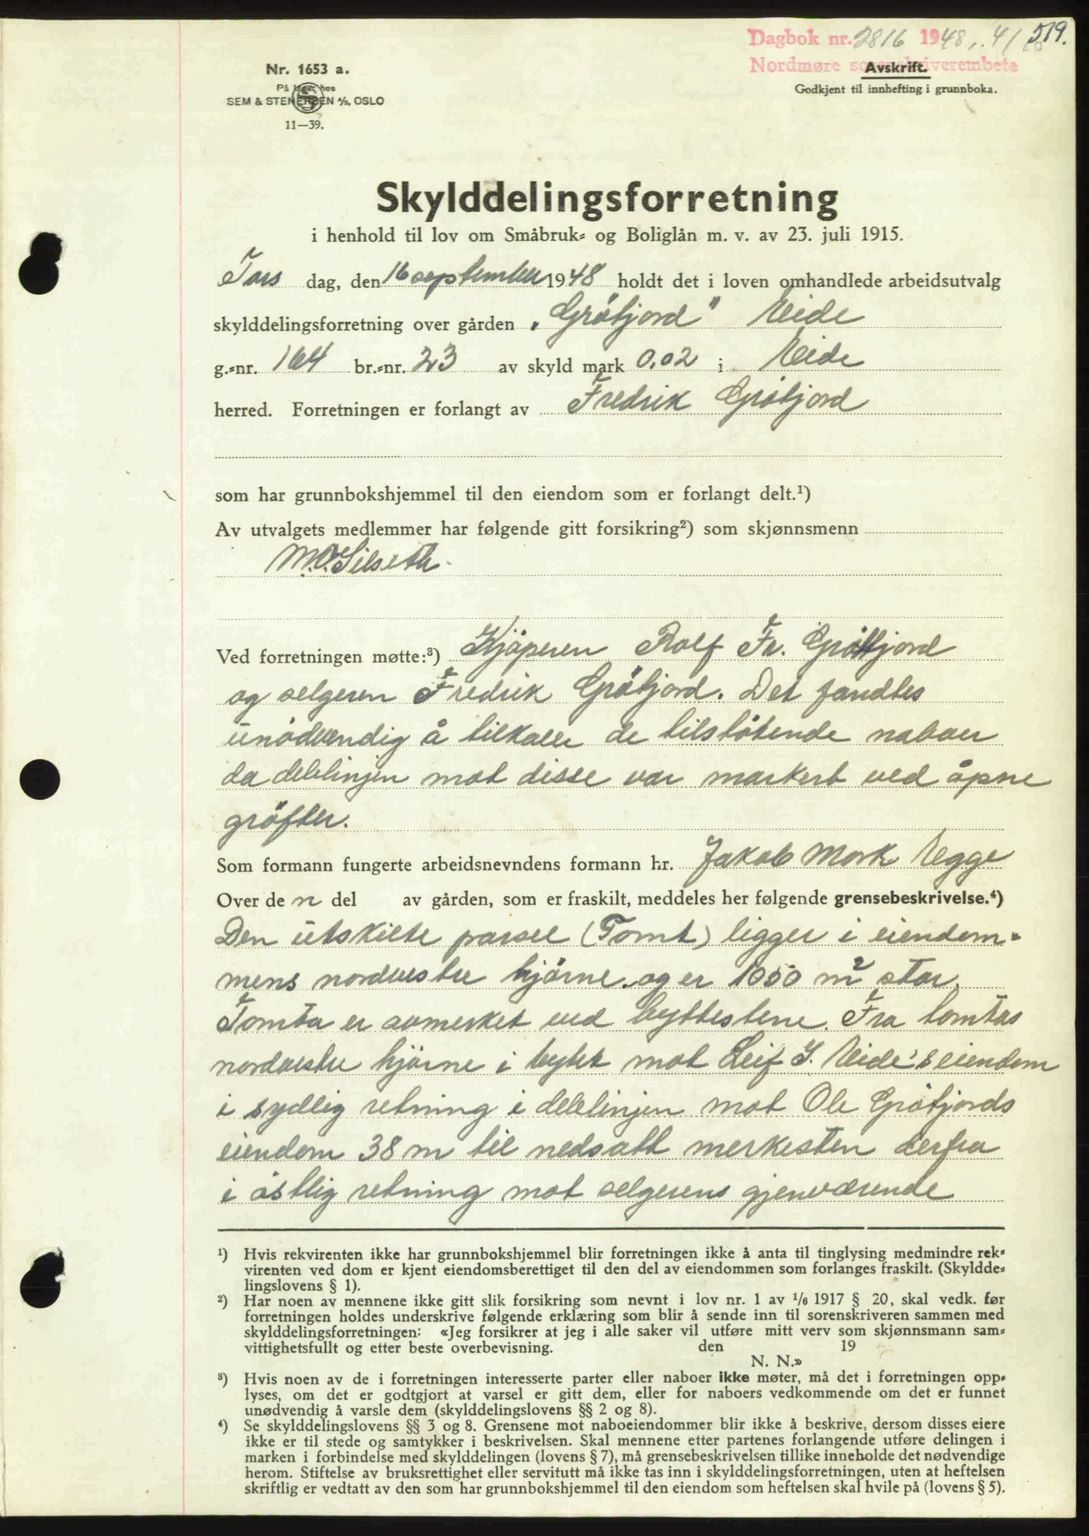 Dagbok nr. 2816 1948, 4/10 519.
Nordmøre sorenskriverembete
Avskrift.
Godkjent til innhefting i grunnboka.
Nr. 1653 a.
På lager hos
SEM & STENERSEN A/S, OSLO
11—39.
Skylddelingsforretning
i henhold til lov om Småbruk- og Boliglån m. v. av 23. juli 1915.
Tors dag, den 16 september 1948 holdt det i loven omhandlede arbeidsutvalg
skylddelingsforretning over gården „Gröfjord" Eide
g.-nr. 164 br.-nr. 23 av skyld mark 0.02 i Eide
herred. Forretningen er forlangt av Fredrik Gröfjord
som har grunnbokshjemmel til den eiendom som er forlangt delt.¹)
Av utvalgets medlemmer har følgende gitt forsikring²) som skjønnsmenn
M.O. Silseth.
Ved forretningen møtte:³) Kjöperen Rolf Fr. Gröfjord
og selgeren Fredrik Gröfjord. Det fandtes
unödvendig å tilkalle de tilstötende naboer
da delelinjen mot disse var markert ved åpne
gröfter.
Som formann fungerte arbeidsnevndens formann hr. Jakob Mork Egge
Over de n del av gården, som er fraskilt, meddeles her følgende grensebeskrivelse.⁴)
Den utskilte parsel (Tomt) ligger i eiendom-
mens nordvestre hjörne og er 1050 m² stor.
Tomta er avmerket ved byttestene. Fra tomtas
nordvestre hjörne i bytet mot Leif J. Eide's eiendom
i sydlig retning i delelinjen mot Ole Gröfjords
eiendom 38 m til nedsatt merkesten derfra
i östlig retning mot selgerens gjenværende
¹) Hvis rekvirenten ikke har grunnbokshjemmel blir forretningen ikke å anta til tinglysing medmindre rek-
virenten ved dom er kjent eiendomsberettiget til den del av eiendommen som forlanges fraskilt. (Skyldde-
lingslovens § 1).
²) Har noen av mennene ikke gitt slik forsikring som nevnt i lov nr. 1 av 1/6 1917 § 20, skal vedk. før
forretningen holdes underskrive følgende erklæring som blir å sende inn til sorenskriveren sammen med
skylddelingsforretningen: «Jeg forsikrer at jeg i alle saker vil utføre mitt verv som skjønnsmann sam-
vittighetsfullt og etter beste overbevisning. den 19
N. N.»
³) Hvis noen av de i forretningen interesserte parter eller naboer ikke møter, må det i forretningen opp-
lyses, om det er godtgjort at varsel er gitt dem, eller for naboers vedkommende om det er funnet
unødvendig å varsle dem (skylddelingslovens §§ 2 og 8).
⁴) Se skylddelingslovens §§ 3 og 8. Grensene mot naboeiendommer blir ikke å beskrive, dersom disses eiere
ikke er til stede og samtykker i beskrivelsen. Skal mennene etter partenes forlangende utføre delingen i
marken i forbindelse med skylddelingen (lovens § 7), må grensebeskrivelsen tillike inneholde det nødvendige
herom. Stiftelse av bruksrettighet eller servitutt må ikke tas inn i skylddelingsforretningen, uten at heftelsen
skriftlig er vedtatt av den som har grunnbokshjemmel til den eiendom som heftelsen skal hvile på (lovens § 5).